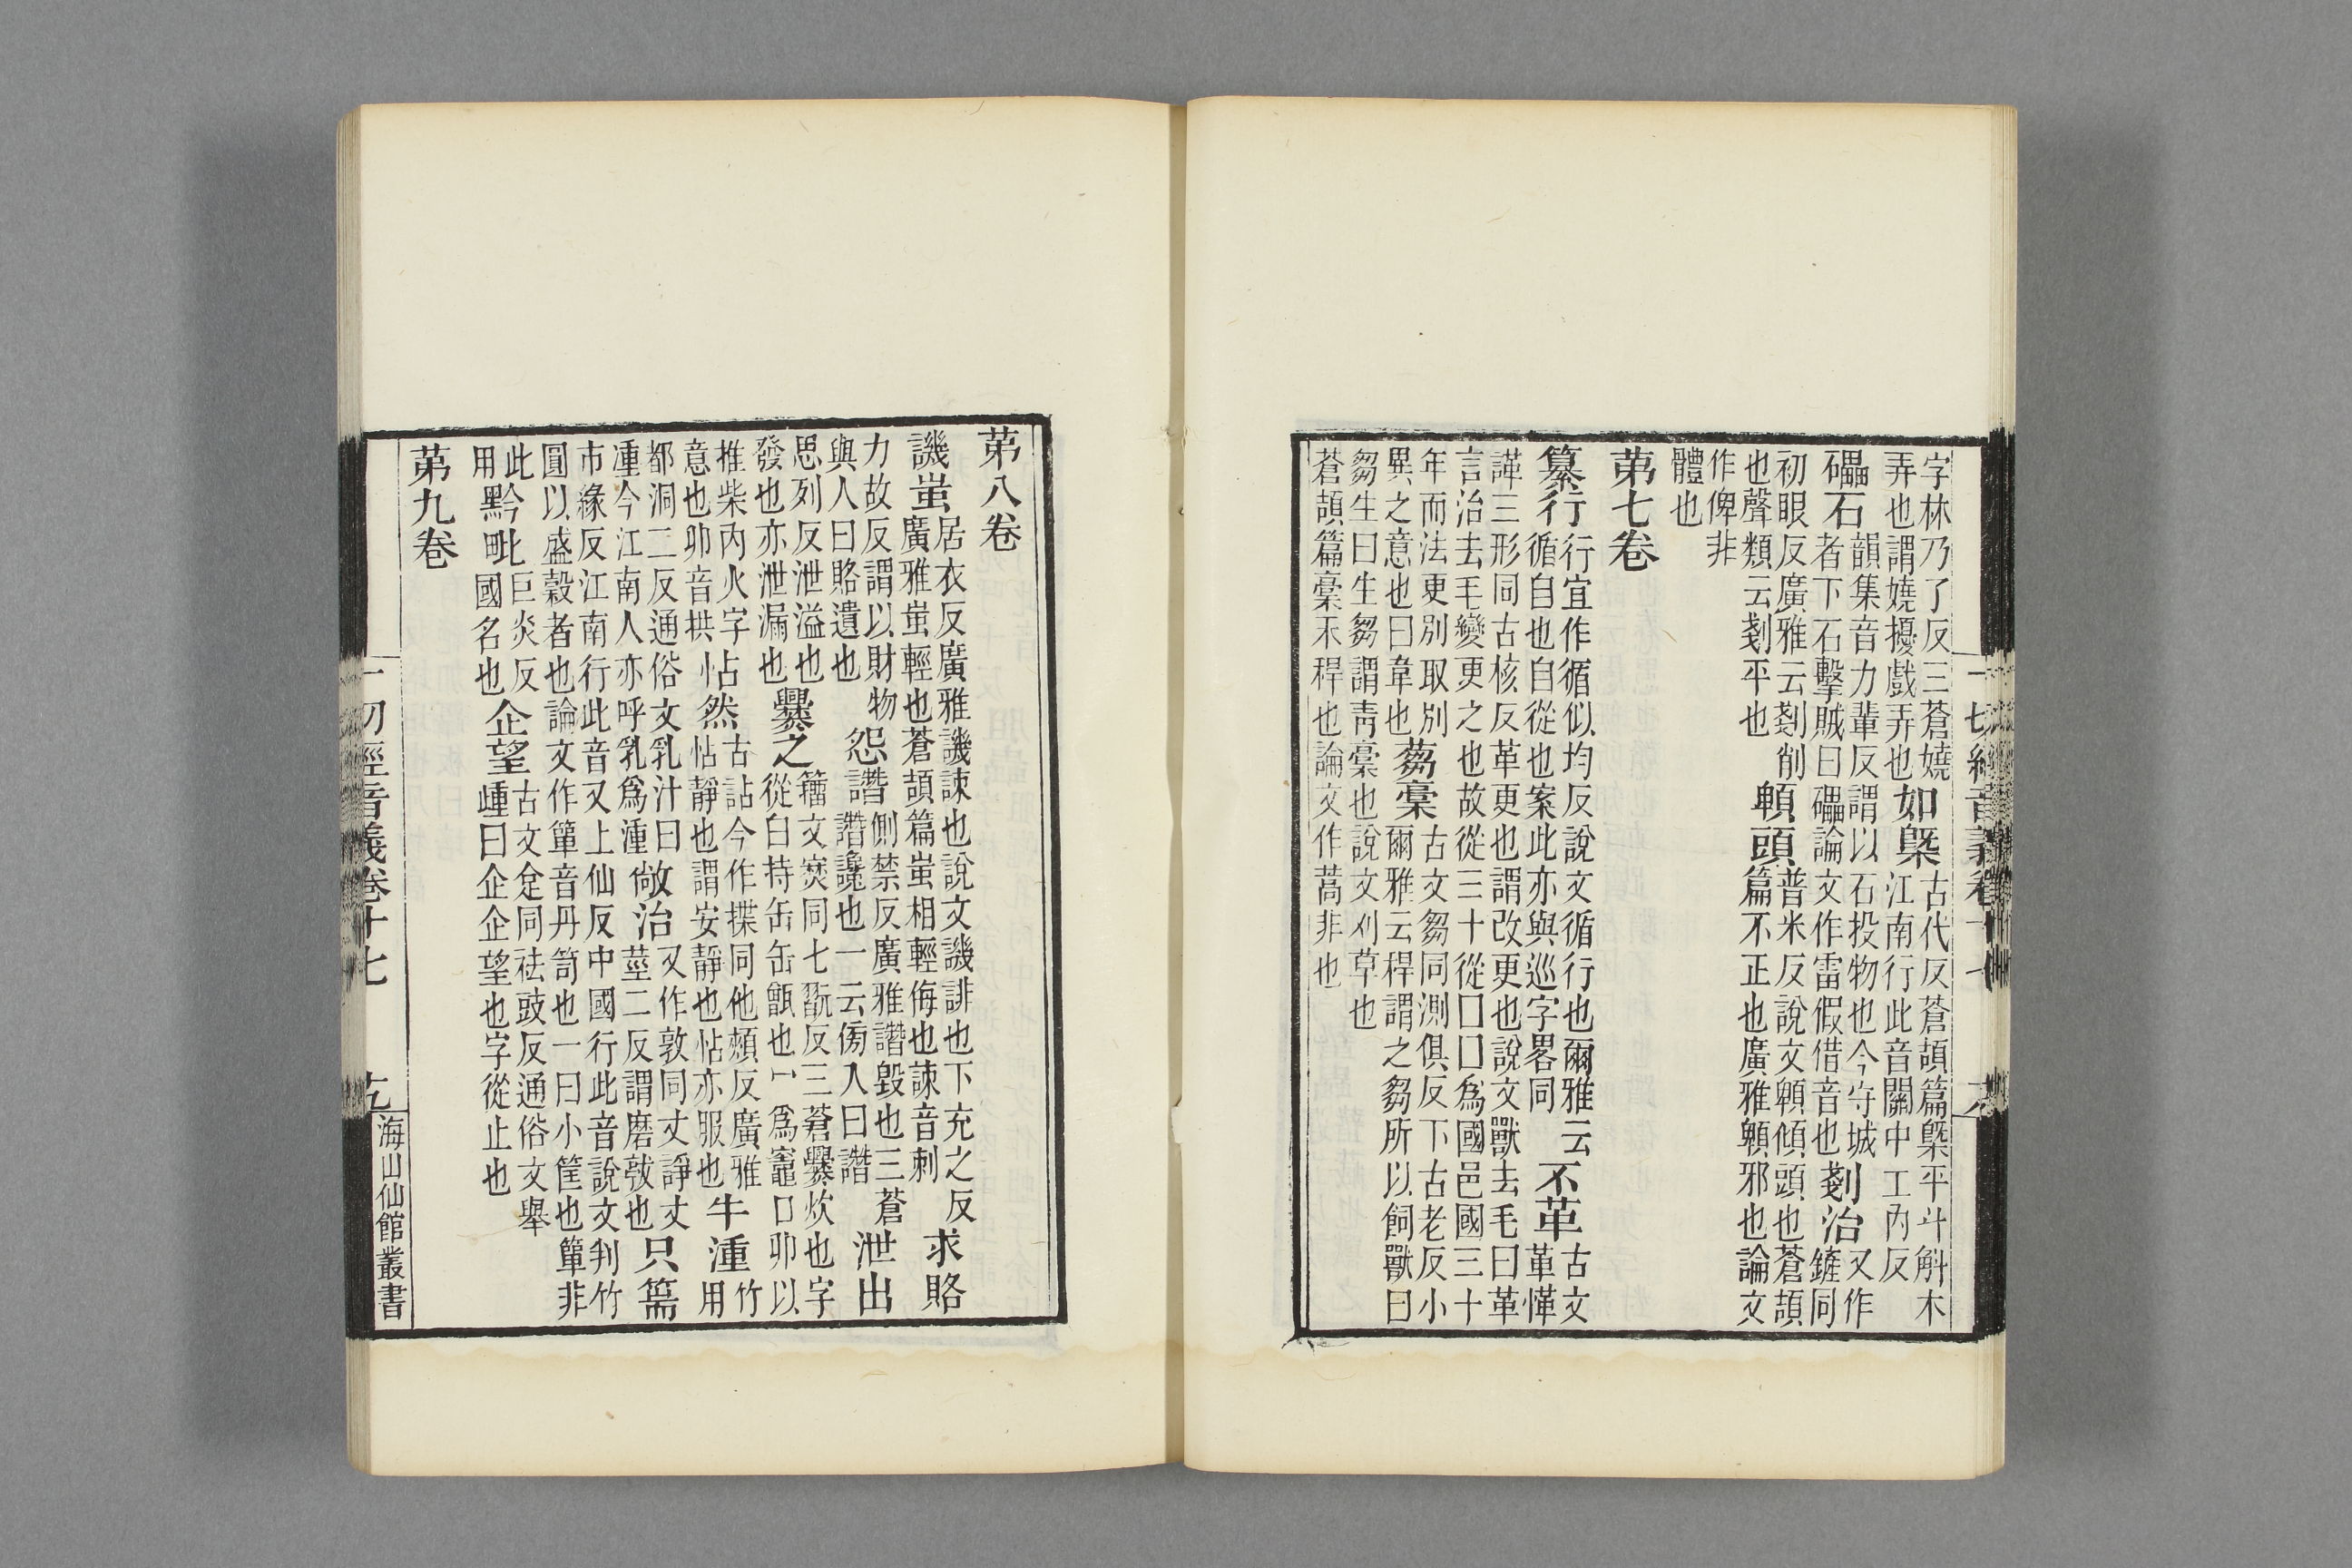 字林乃了反三蒼嬈弄也謂嬈擾戲弄也如槩古代反蒼頡篇槩平斗斛木江南行此音關中工內反
礧石韻集音力輩反謂以石投物也今守城者下石擊賊曰礧論文作雷假借音也剗治又作鏟同
初眼反廣雅云剗削也聲類云剗平也頓頭普米反說文頓傾頭也蒼頡篇不正也廣雅頓邪也論文
作俾非體也
苐七卷
纂行行宜作循似均反說文循行也爾雅云循自也自從也案此亦與巡字畧同不革古文革愅
諽三形同古核反革更也謂改更也說文獸去毛曰革言治去毛變更之也故從三十從囗囗爲國邑國三十
年而法更別取別異之意也曰韋也蒭稾古文芻同測俱反下古老反小爾雅云稈謂之芻所以飼獸曰
芻生曰生芻謂靑稾也說文刈草也蒼頡篇稾禾稈也論文作蒿非也
苐八卷
譏蚩居衣反廣雅譏諫也說文譏誹也下充之反廣雅蚩輕也蒼頡篇蚩相輕侮也諫音刺求賂
力故反謂以財物與人曰賂遺也怨譖側禁反廣雅譖毀也三蒼譖讒也一云傍入曰譖泄出
思列反泄溢也發也亦泄漏也爨之籒文焋同七翫反三蒼爨炊也字從臼持缶缶甑也冖爲竈口卯以
推柴內火字意也卯音拱怗然古詀今作㨹同他頰反廣雅怗靜也謂安靜也怗亦服也牛湩竹用
都洞二反通俗文乳汁曰湩今江南人亦呼乳爲湩敞治又作敦同丈諍丈莖二反謂磨敞也只篅
市緣反江南行此音又上仙反中國行此音說文判竹圓以盛穀者也論文作簞音丹笥也一曰小筐也簞非
此用黔毗巨炎反國名也企望古文㞷同袪豉反通俗文舉歱曰企企望也字從止也
苐九卷
一切經音義卷十七
海山仙館叢書